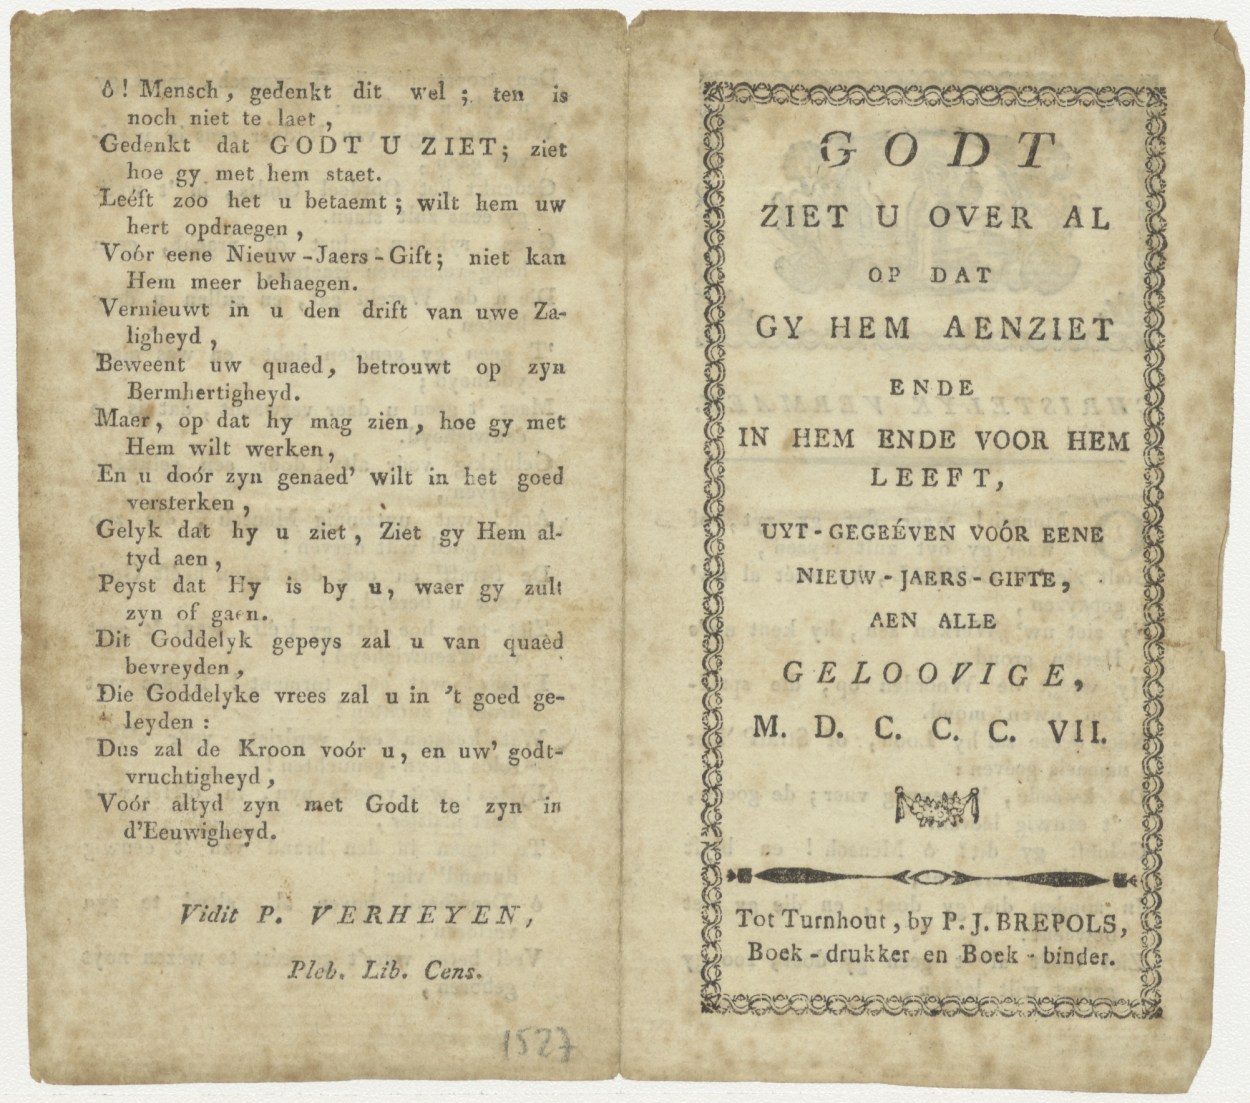 ô ! Mensch, gedenkt dit wel ; ten is
noch niet te laet,
Gedenkt dat GODT U ZIET; ziet
hoe gy met hem staet.
Leéft zoo het u betaemt ; wilt hem uw
hert opdraegen,
Voór eene Nieuw-Jaers-Gift; niet kan
Hem meer behaegen.
Vernieuwt in u den drift van uwe Za-
ligheyd,
Beweent uw quaed, betrouwt op zyn
Bermhertigheyd.
Maer, op dat hy mag zien, hoe gy met
Hem wilt werken,
En u doór zyn genaed' wilt in het goed
versterken,
Gelyk dat hy u ziet, Ziet gy Hem al-
tyd aen,
Peyst dat Hy is by u, waer gy zult
zyn of gaen.
Dit Goddelyk gepeys zal u van quaèd
bevreyden,
Die Goddelyke vrees zal u in 't goed ge-
leyden :
Dus zal de Kroon voór u, en uw' godt-
vruchtigheyd,
Voór altyd zyn met Godt te zyn in
d'Eeuwigheyd.
Vidit P. VERHEYEN,
Pleb. Lib. Cens.
1527
GODT
ZIET U OVER AL
OP DAT
GY HEM AENZIET
ENDE
IN HEM ENDE VOOR HEM
LEEFT,
UYT-GEGEÉVEN VOÓR EENE
NIEUW-JAERS-GIFTE,
AEN ALLE
GELOOVIGE,
M. D. C. C. C. VII.
Tot Turnhout, by P. J. BREPOLS,
Boek-drukker en Boek-binder.